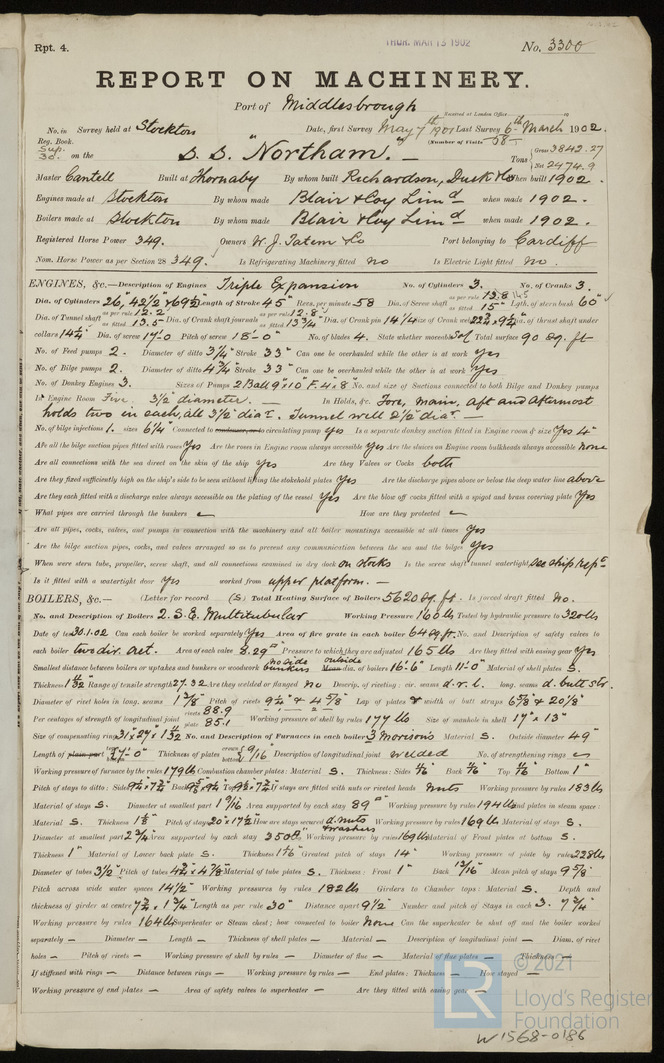 Rpt. 4.
THUR. MAR 13 1902
No. 3300
REPORT ON MACHINERY.
Port of Middlesbrough
Received at London Office
No. in Survey held at Stockton Date, first Survey May 7th 1901 Last Survey 6th March 1902.
Reg. Book. (Number of Visits 58)
Sup. 30. on the S. S. "Northam." Tons { Gross 3842.27 Net 2474.9
Master Cantell Built at Thornaby By whom built Richardson, Duck & Co When built 1902.
Engines made at Stockton By whom made Blair & Coy Limd when made 1902.
Boilers made at Stockton By whom made Blair & Coy Limd when made 1902.
Registered Horse Power 349. Owners W. J. Tatem & Co Port belonging to Cardiff
Nom. Horse Power as per Section 28 349. Is Refrigerating Machinery fitted no Is Electric Light fitted no.
ENGINES, &c.—Description of Engines Triple Expansion No. of Cylinders 3. No. of Cranks 3.
Dia. of Cylinders 26", 42½" & 69½" Length of Stroke 45" Revs. per minute 58 Dia. of Screw shaft as per rule 13.8 as fitted 15" Lgth. of stern bush 60"
Dia. of Tunnel shaft as per rule 12.2" as fitted 13.5" Dia. of Crank shaft journals as per rule 12.8" as fitted 13¾" Dia. of Crank pin 14¼" Size of Crank webs 22¾ x 9¼" Dia. of thrust shaft under
collars 14¼" Dia. of screw 17'-0 Pitch of screw 18'-0" No. of blades 4. State whether moveable Sol Total surface 90 sq. ft
No. of Feed pumps 2. Diameter of ditto 3¾" Stroke 33" Can one be overhauled while the other is at work yes
No. of Bilge pumps 2. Diameter of ditto 4¾" Stroke 33" Can one be overhauled while the other is at work yes
No. of Donkey Engines 3. Sizes of Pumps 2 Ball 9" x 10" F. 4 x 8" No. and size of Suctions connected to both Bilge and Donkey pumps
In Engine Room Five 3½" diameter. — In Holds, &c. Fore, main, aft and aftermost
holds two in each, all 3½" diar. Tunnel well 2½" diar. —
No. of bilge injections 1. sizes 6¼" Connected to condenser, or to circulating pump yes Is a separate donkey suction fitted in Engine room & size Yes 4"
Are all the bilge suction pipes fitted with roses Yes Are the roses in Engine room always accessible Yes Are the sluices on Engine room bulkheads always accessible none
Are all connections with the sea direct on the skin of the ship Yes Are they Valves or Cocks both
Are they fixed sufficiently high on the ship's side to be seen without lifting the stokehold plates Yes Are the discharge pipes above or below the deep water line above
Are they each fitted with a discharge valve always accessible on the plating of the vessel Yes Are the blow off cocks fitted with a spigot and brass covering plate Yes
What pipes are carried through the bunkers — How are they protected —
Are all pipes, cocks, valves, and pumps in connection with the machinery and all boiler mountings accessible at all times Yes
Are the bilge suction pipes, cocks, and valves arranged so as to prevent any communication between the sea and the bilges Yes
When were stern tube, propeller, screw shaft, and all connections examined in dry dock on stocks Is the screw shaft tunnel watertight see ship rept.
Is it fitted with a watertight door Yes worked from upper platform. —
BOILERS, &c.— (Letter for record (S) Total Heating Surface of Boilers 5620 sq. ft. Is forced draft fitted no.
No. and Description of Boilers 2. S.E. Multitubular Working Pressure 160 lbs Tested by hydraulic pressure to 320 lbs
Date of test 30.1.02 Can each boiler be worked separately Yes Area of fire grate in each boiler 64 sq. ft. No. and Description of safety valves to
each boiler two dir. act. Area of each valve 8.29" Pressure to which they are adjusted 165 lbs Are they fitted with easing gear Yes
Smallest distance between boilers or uptakes and bunkers or woodwork no side bunkers outside Mean dia. of boilers 16'-6" Length 11'-0" Material of shell plates S.
Thickness 1 11/32" Range of tensile strength 27.32 Are they welded or flanged no Descrip. of riveting: cir. seams d.r.l. long. seams d. butt str.
Diameter of rivet holes in long. seams 1 3/8" Pitch of rivets 9½" & 4 5/8" Lap of plates or width of butt straps 6 5/8" & 20 5/8"
Per centages of strength of longitudinal joint rivets 88.9 plate 85.1 Working pressure of shell by rules 177 lbs Size of manhole in shell 17" x 13"
Size of compensating ring 31 x 27" x 1 11/32 No. and Description of Furnaces in each boiler 3 Morisons Material S. Outside diameter 49"
Length of plain part top bottom 7'-0" Thickness of plates crown bottom 9/16 Description of longitudinal joint welded No. of strengthening rings —
Working pressure of furnace by the rules 179 lbs Combustion chamber plates: Material S. Thickness: Sides 11/16" Back 11/16" Top 11/16" Bottom 1"
Pitch of stays to ditto: Sides 9½ x 7¾" If stays are fitted with nuts or riveted heads nuts Working pressure by rules 183 lbs
Material of stays S. Diameter at smallest part 1 9/16 Area supported by each stay 89" Working pressure by rules 194 lbs End plates in steam space:
Material S. Thickness 1 1/8" Pitch of stays 20" x 17½" How are stays secured d. nuts & washers Working pressure by rules 169 lbs Material of stays S.
Diameter at smallest part 2¾" Area supported by each stay 350" Working pressure by rules 169 lbs Material of Front plates at bottom S.
Thickness 1" Material of Lower back plate S. Thickness 1 1/16" Greatest pitch of stays 14" Working pressure of plate by rules 228 lbs
Diameter of tubes 3½" Pitch of tubes 4¾ x 4 7/8 Material of tube plates S. Thickness: Front 1" Back 13/16" Mean pitch of stays 9 5/8
Pitch across wide water spaces 14½" Working pressures by rules 182 lbs Girders to Chamber tops: Material S. Depth and
thickness of girder at centre 7¾ x 1¾" Length as per rule 30" Distance apart 9½ Number and pitch of Stays in each 3. 7¾"
Working pressure by rules 164 lbs Superheater or Steam chest; how connected to boiler None Can the superheater be shut off and the boiler worked
separately — Diameter — Length — Thickness of shell plates — Material — Description of longitudinal joint — Diam. of rivet
holes — Pitch of rivets — Working pressure of shell by rules — Diameter of flue — Material of flue plates — Thickness —
If stiffened with rings — Distance between rings — Working pressure by rules — End plates: Thickness — How stayed —
Working pressure of end plates — Area of safety valves to superheater — Are they fitted with easing gear —
© 2021
LR
Lloyd's Register
Foundation
W1568-0186